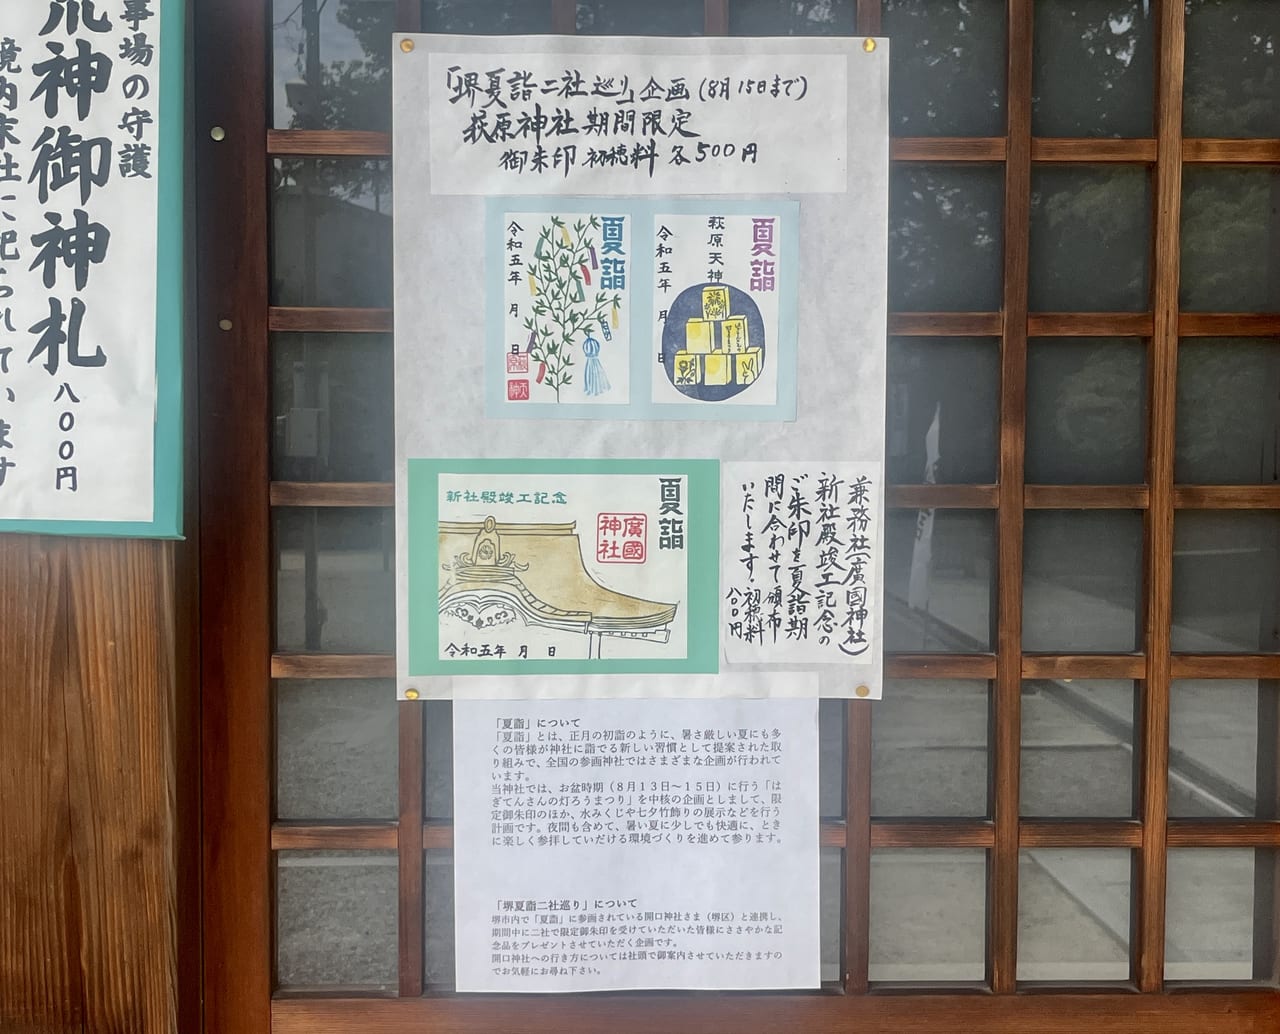 事場の守護
荒神御神札
八〇〇円
境内末社に祀られています
「堺夏詣二社巡り」企画(8月15日まで)
萩原神社期間限定
御朱印初穂料各500円
夏詣
令和五年 月 日
夏詣
萩原天神
令和五年 月 日
夏詣
新社殿竣工記念
廣國
神社
令和五年 月 日
兼務社(廣国神社)
新社殿竣工記念の
ご朱印を夏詣期
間に合わせて頒布
いたします。初穂料
八〇〇円
「夏詣」について
「夏詣」とは、正月の初詣のように、暑さ厳しい夏にも多
くの皆様が神社に詣でる新しい習慣として提案された取
り組みで、全国の参画神社ではさまざまな企画が行われて
います。
当神社では、お盆時期(8月13日～15日)に行う「は
ぎてんさんの灯ろうまつり」を中核の企画としまして、限
定御朱印のほか、水みくじや七夕竹飾りの展示などを行う
計画です。夜間も含めて、暑い夏に少しでも快適に、とき
に楽しく参拝していだける環境づくりを進めて参ります。
「堺夏詣二社巡り」について
堺市内で「夏詣」に参画されている開口神社さま(堺区)と連携し、
期間中に二社で限定御朱印を受けていただいた皆様にささやかな記
念品をプレゼントさせていただく企画です。
開口神社への行き方については社頭で御案内させていただきますの
でお気軽にお尋ね下さい。